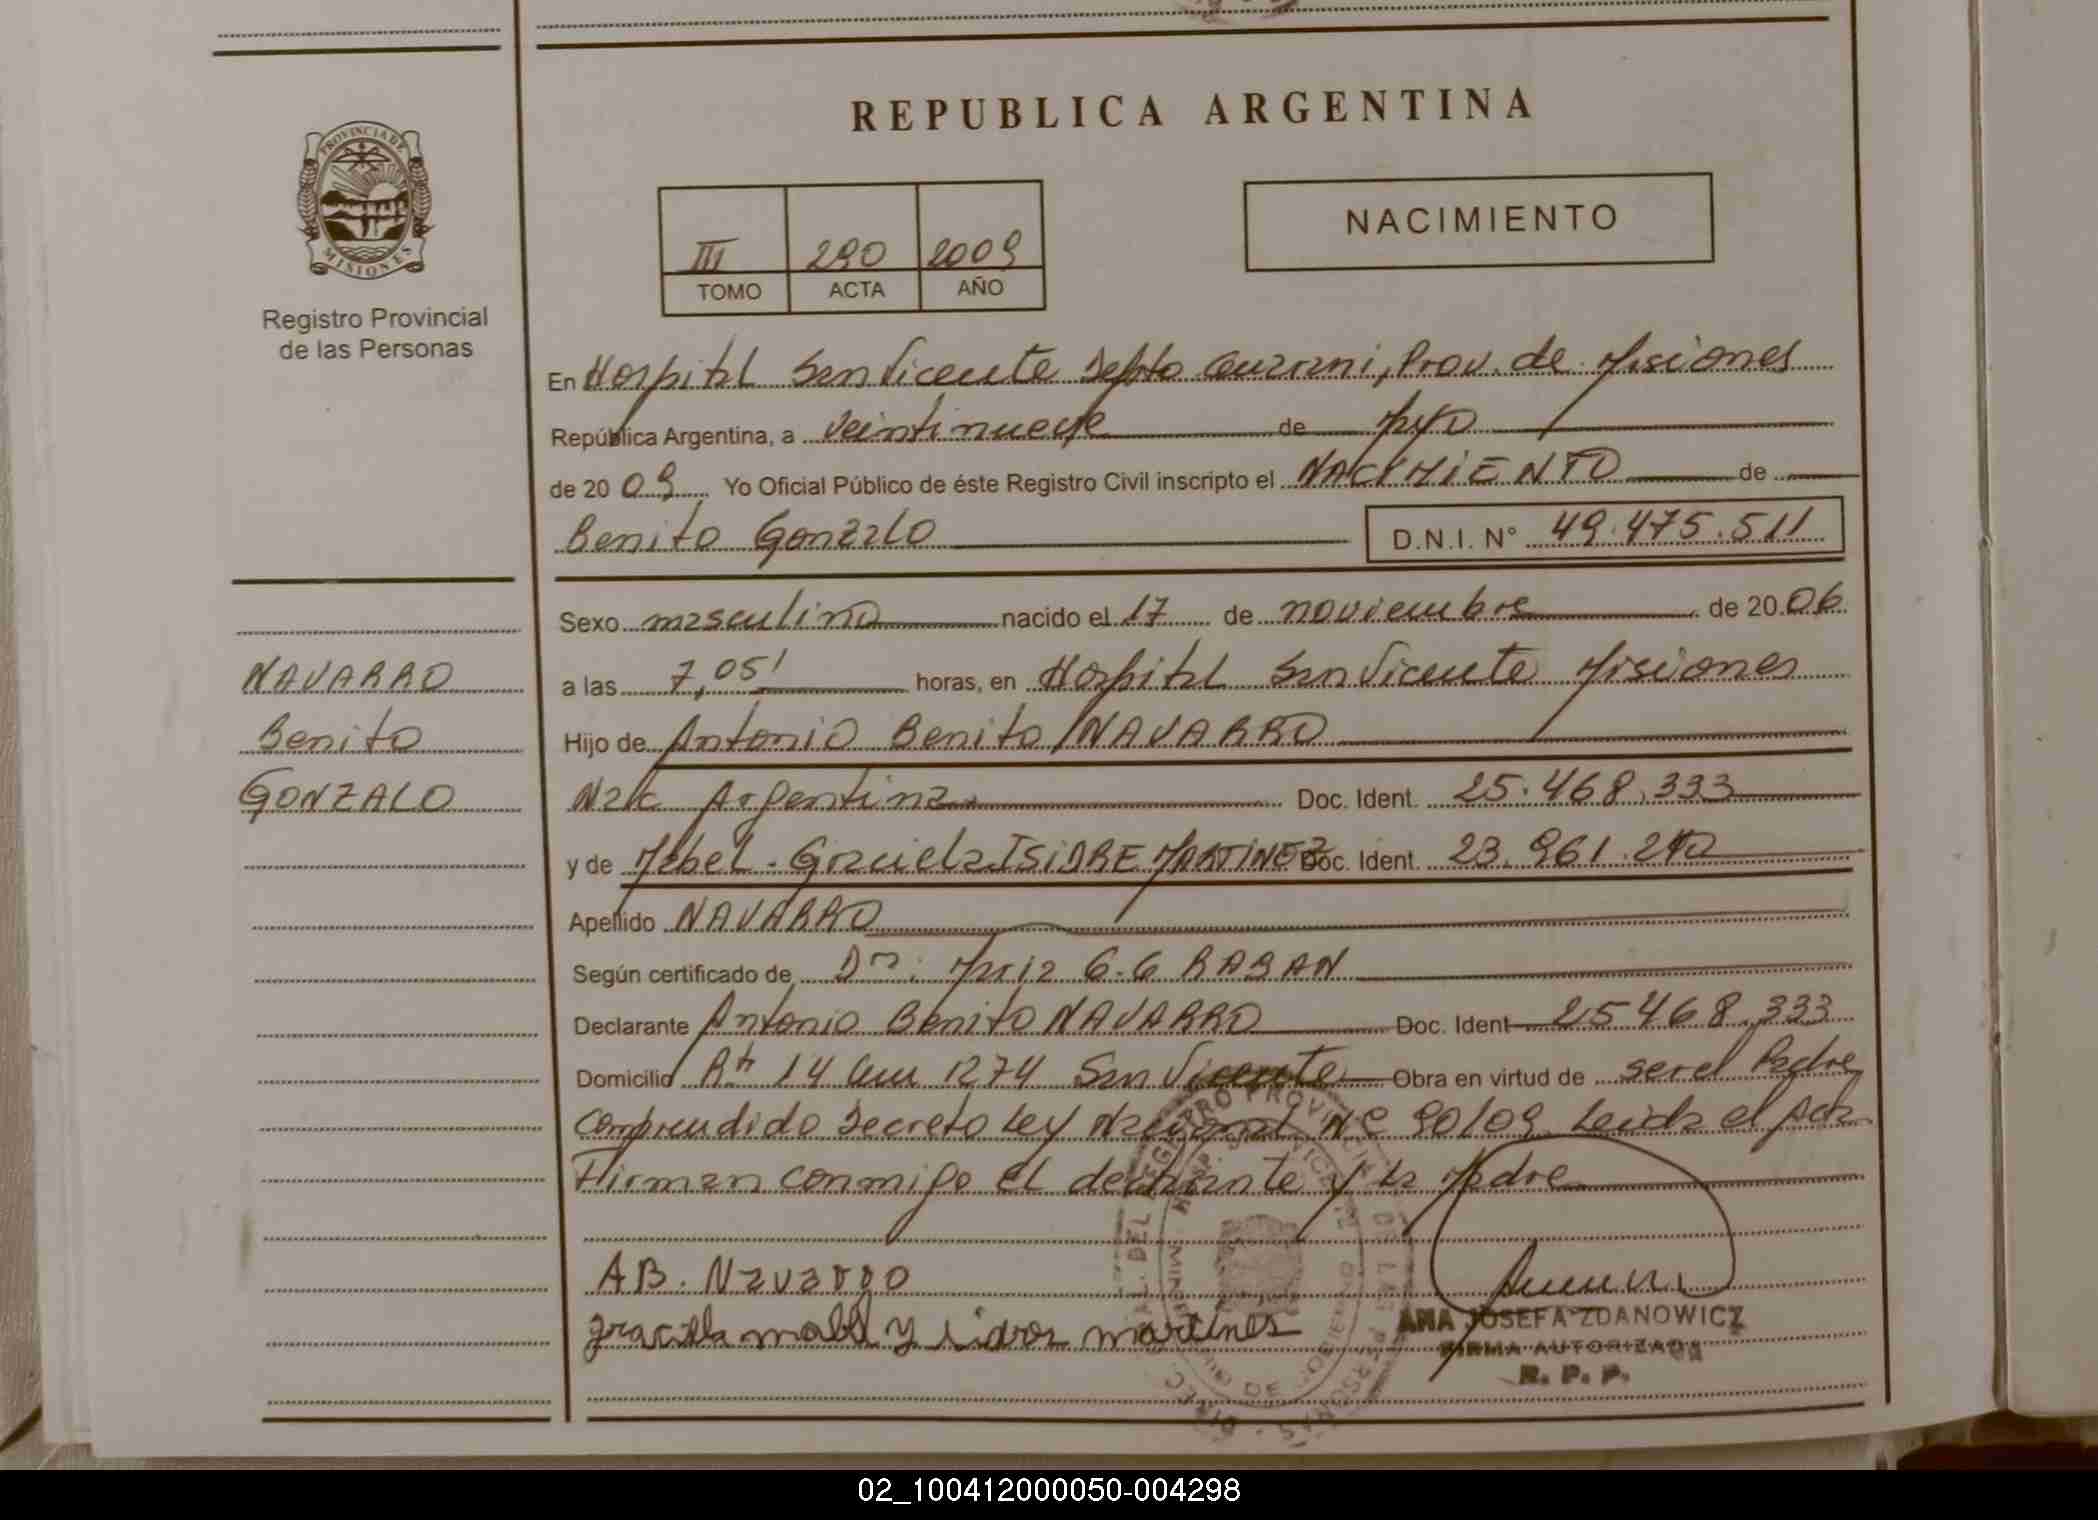 REPUBLICA ARGENTINA
PROVINCIA DE
MISIONES
Registro Provincial
de las Personas
III 290 2009
TOMO ACTA AÑO
NACIMIENTO
En Hospital San Vicente Depto Guarani, Prov. de Misiones
República Argentina, a veintinueve de Mayo
de 20 09 Yo Oficial Público de éste Registro Civil inscripto el NACIMIENTO de
Benito Gonzalo D.N.I. N° 49.475.511
Sexo masculino nacido el 17 de noviembre de 20 06
a las 7,05' horas, en Hospital San Vicente Misiones
Hijo de Antonio Benito NAVARRO
Nac Argentina Doc. Ident. 25.468.333
y de Mabel Graciela ISIDRE MARTINEZ Doc. Ident. 23.961.210
Apellido NAVARRO
Según certificado de Dra. Maria G.G RABAN
Declarante Antonio Benito NAVARRO Doc. Ident 25468.333
Domicilio Rta 14 km 1274 San Vicente Obra en virtud de ser el Padre
Comprendido Decreto Ley Nacional Nº 90/09 Leida el Acta
Firman conmigo el declarante y la Madre
NAVARRO
Benito
GONZALO
AB. Navarro
martines
ANA JOSEFA ZDANOWICZ
FIRMA AUTORIZADA
R. P. P.
02_100412000050-004298